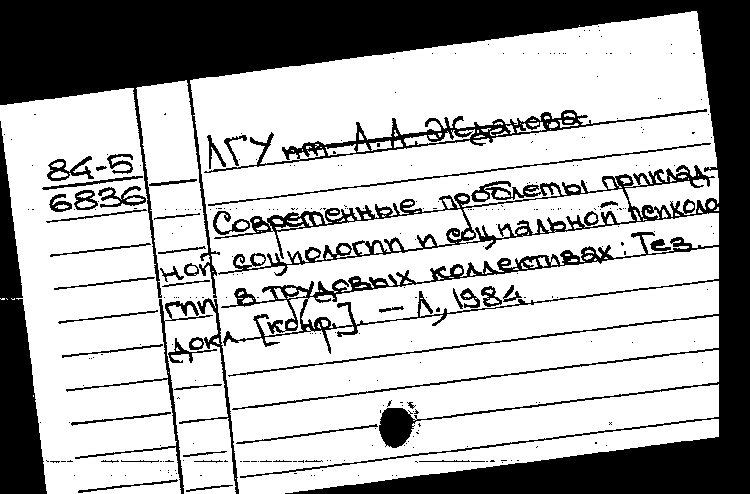 84-5
6836
ЛГУ им. А. А. Жданова.
Современные проблемы приклад-
ной социологии и социальной психоло
гии в трудовых коллективах: Тез.
докл. [конф.]. — Л., 1984.